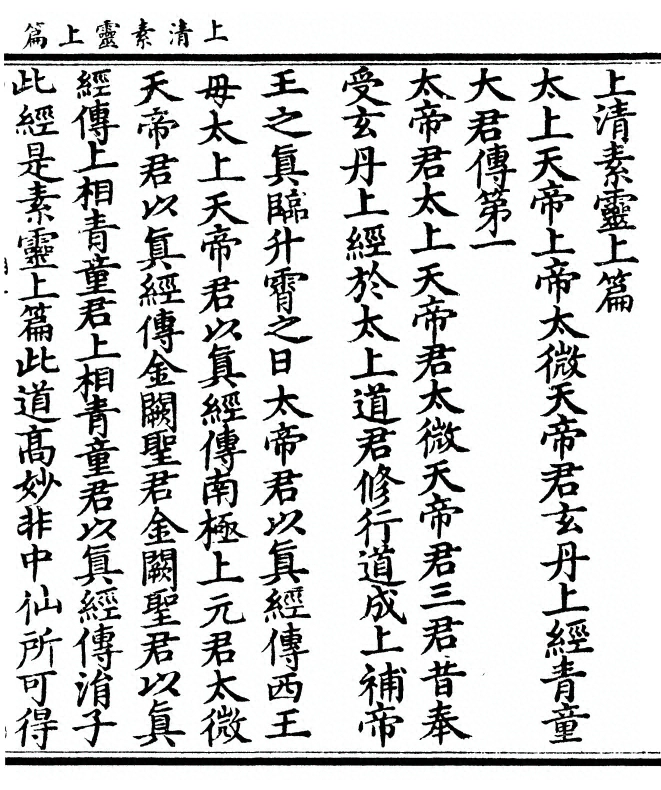 上清素靈上篇
上清素靈上篇
太上天帝上帝太微天帝君玄丹上經青童
大君傳第一
太帝君太上天帝君太微天帝君三君昔奉
受玄丹上經於太上道君修行道成上補帝
王之眞臨升霄之日太帝君以眞經傳西王
母太上天帝君以眞經傳南極上元君太微
天帝君以眞經傳金闕聖君金闕聖君以眞
經傳上相青童君上相青童君以眞經傳涓子
此經是素靈上篇此道高妙非中仙所可得